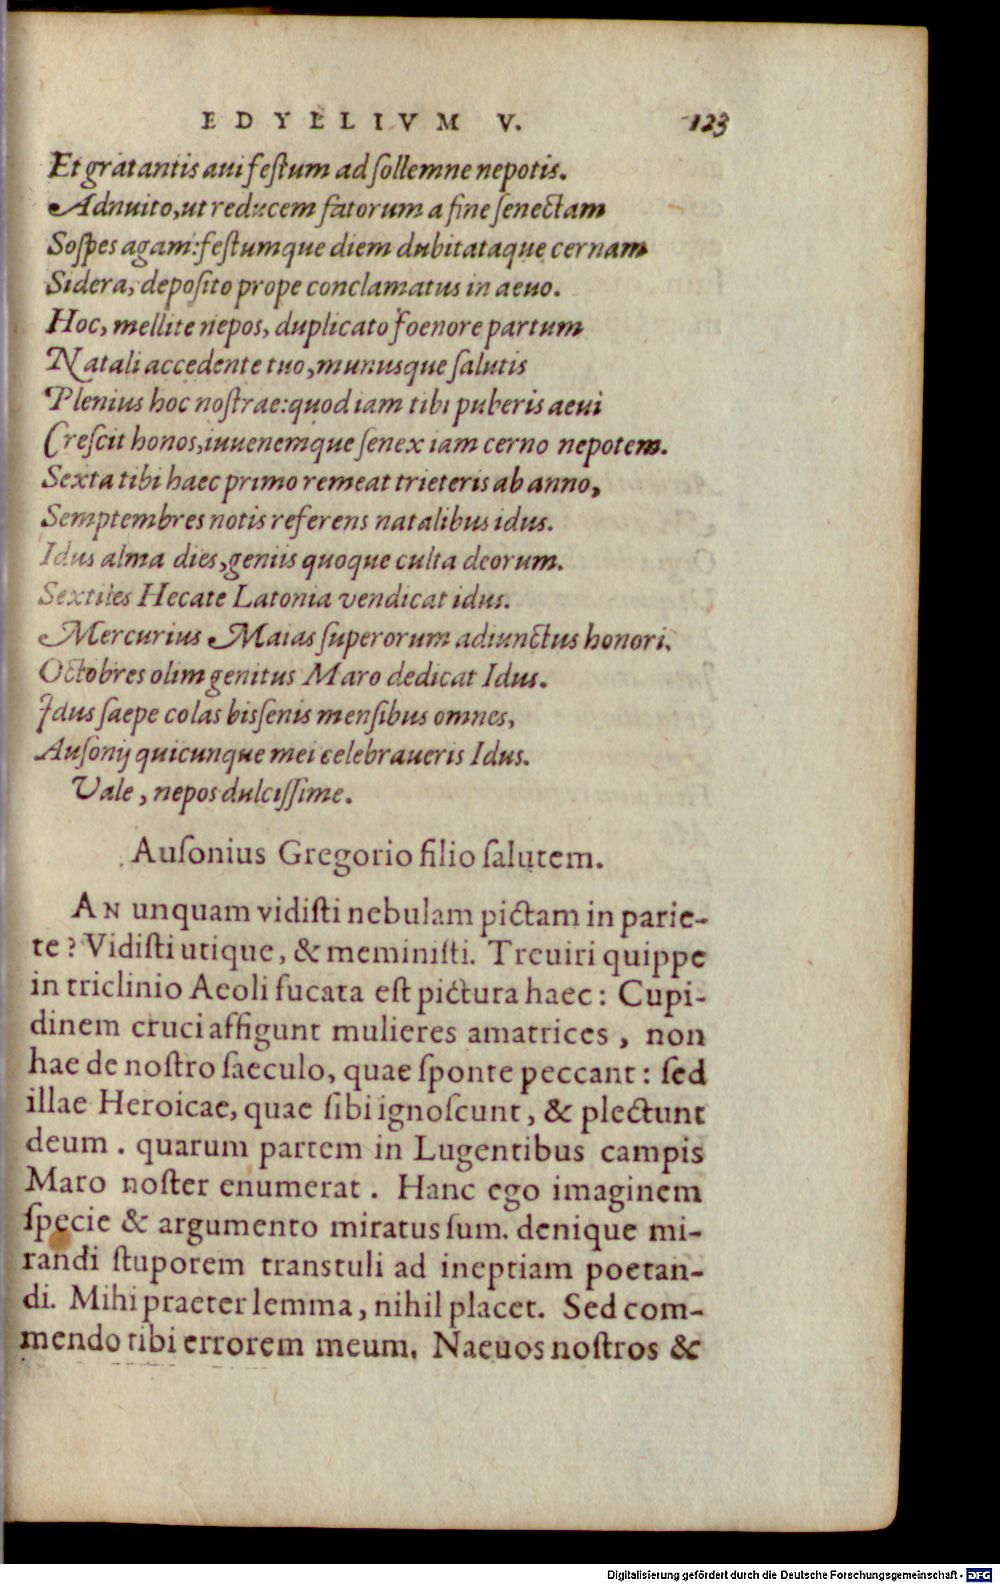 EDYLLIVM V. 123
Et gratantis aui feſtum ad ſollemne nepotis.
Adnuito, ut reducem fatorum a fine ſenectam
Soſpes agam: feſtumque diem dubitataque cernam
Sidera, depoſito prope conclamatus in aeuo.
Hoc, mellite nepos, duplicato foenore partum
Natali accedente tuo, munusque ſalutis
Plenius hoc noſtrae: quod iam tibi puberis aeui
Creſcit honos, iuuenemque ſenex iam cerno nepotem.
Sexta tibi haec primo remeat trieteris ab anno,
Semptembres notis referens natalibus idus.
Idus alma dies, geniis quoque culta deorum.
Sextiles Hecate Latonia vendicat idus.
Mercurius Maias ſuperorum adiunctus honori.
Octobres olim genitus Maro dedicat Idus.
Idus ſaepe colas biſſenis menſibus omnes,
Auſonij quicunque mei celebraueris Idus.
Vale, nepos dulciſſime.
Auſonius Gregorio filio ſalutem.
AN unquam vidiſti nebulam pictam in parie-
te? Vidiſti utique, & meminiſti. Treuiri quippe
in triclinio Aeoli fucata eſt pictura haec: Cupi-
dinem cruci affigunt mulieres amatrices, non
hae de noſtro ſaeculo, quae ſponte peccant: ſed
illae Heroicae, quae ſibi ignoſcunt, & plectunt
deum. quarum partem in Lugentibus campis
Maro noſter enumerat. Hanc ego imaginem
ſpecie & argumento miratus ſum. denique mi-
randi ſtuporem tranſtuli ad ineptiam poetan-
di. Mihi praeter lemma, nihil placet. Sed com-
mendo tibi errorem meum. Naeuos noſtros &
Digitalisierung gefördert durch die Deutsche Forschungsgemeinschaft - DFG